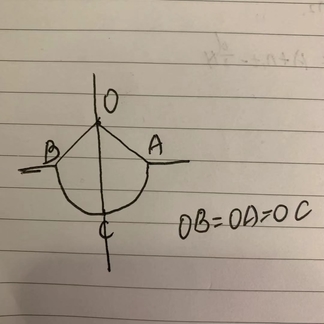 O
B
A
C
OB=OA=OC